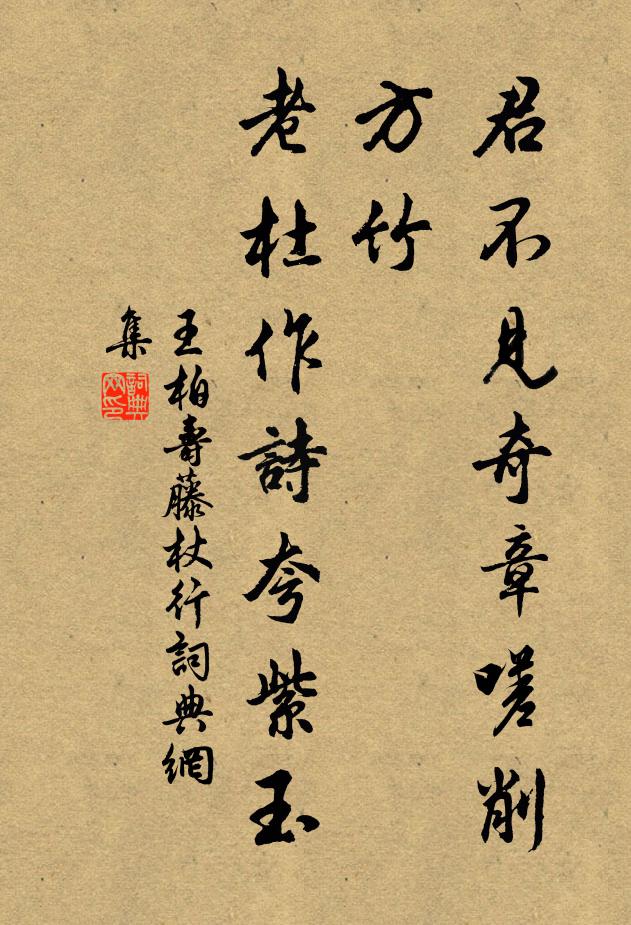 君不見奇章嗟削
方竹
老杜作詩夸紫玉
王柏壽藤杖行詞典網
集
詞典
網印